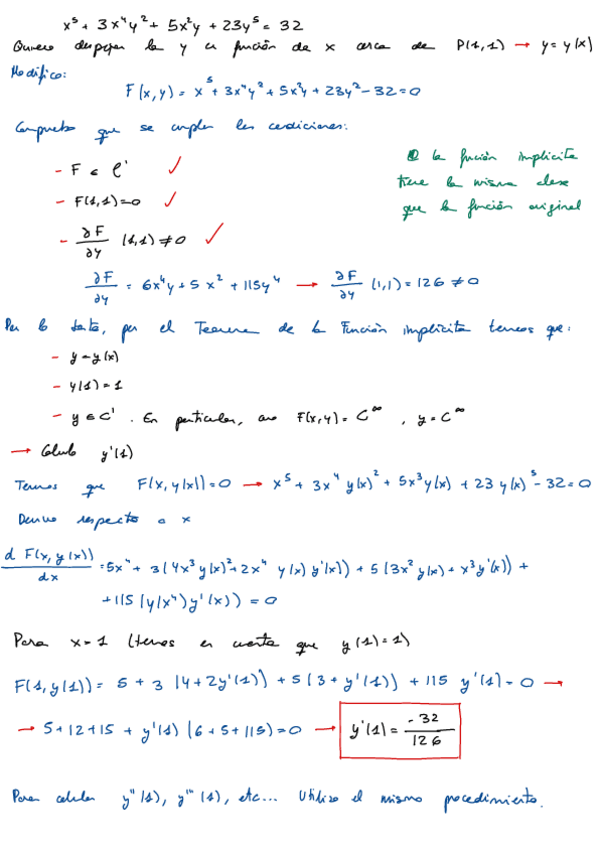 x⁵ + 3x⁴y² + 5x²y + 23y⁵ = 32
Quiero despejar la y en función de x cerca de P(1,1) → y = y(x)
Modifico:
F(x,y) = x⁵ + 3x⁴y² + 5x³y + 23y² - 32 = 0
Compruebo que se cumplen las condiciones:
- F ∈ C¹ ✓
- F(1,1) = 0 ✓
- ∂F/∂y (1,1) ≠ 0 ✓
la función implícita
tiene la misma clase
que la función original
∂F/∂y = 6x⁴y + 5x² + 115y⁴ → ∂F/∂y (1,1) = 126 ≠ 0
Por lo tanto, por el Teorema de la Función implícita tenemos que:
- y = y(x)
- y(1) = 1
- y ∈ C¹. En particular, como F(x,y) = C^∞, y = C^∞
→ Calculo y'(1)
Tenemos que F(x, y(x)) = 0 → x⁵ + 3x⁴ y(x)² + 5x³y(x) + 23 y(x)⁵ - 32 = 0
Derivo respecto a x
d F(x, y(x))/dx = 5x⁴ + 3(4x³y(x)² + 2x⁴ y(x) y'(x)) + 5(3x²y(x) + x³y'(x)) +
+ 115(y(x⁴)y'(x)) = 0
Para x = 1 (tenemos en cuenta que y(1) = 1)
F(1, y(1)) = 5 + 3(4 + 2y'(1)) + 5(3 + y'(1)) + 115 y'(1) = 0 →
→ 5 + 12 + 15 + y'(1) (6 + 5 + 115) = 0 → y'(1) = -32/126
Para calcular y''(1), y'''(1), etc... Utilizo el mismo procedimiento.